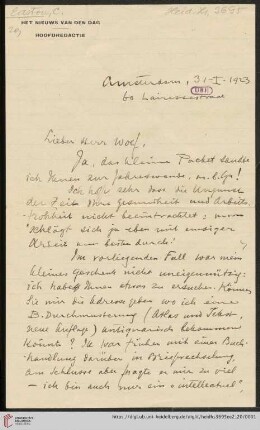 Easton, C.
Heid. Hs. 3695
HET NIEUWS VAN DEN DAG
HOOFDREDACTIE
Amsterdam, 31-I-1923
60 Lairessestraat
UBH
Lieber Herr Wolf,
Ja, das kleine Packet sandte
ich Ihnen zur Jahreswende, m. l. Gr!
Ich hoffe sehr dass die Ungunst
der Zeit Ihre Gesundheit und Arbeits-
frohheit nicht beeinträchtet; man
schlägt sich ja eben mit emsiger
Arbeit am besten durch!
Im vorliegenden Fall war mein
kleines Geschenk nicht uneigennützig:
ich habe Ihnen etwas zu ersuchen. Können
Sie mir die Adresse geben wo ich eine
B. Durchmusterung (Atlas und Text,
neue Auflage) antiquarisch bekommen
könnte? Ich war früher mit einer Buch-
handlung darüber in Briefwechslung,
am Schlusse aber fragte er mir zu viel
— ich bin auch nur ein "intellectuel".
https://digi.ub.uni-heidelberg.de/diglit/heidhs3695ea2_20/0001